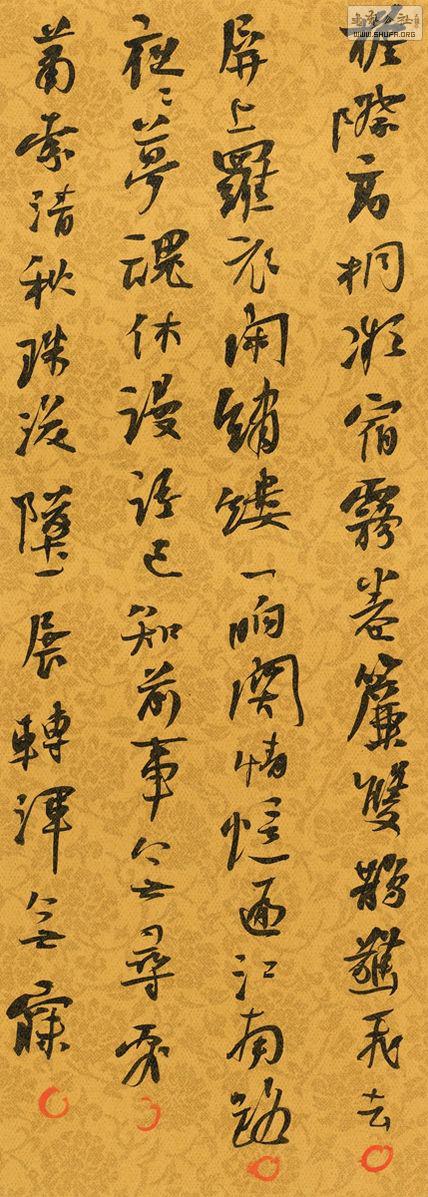 WWW.SHUFA.ORG
庭際高桐凝宿霧卷簾雙鵲驚飛去
屏上羅衣閑繡縷一晌關情憶遍江南路
夜〻夢魂休謾語已知前事無尋處
蕭索清秋珠淚墜展轉渾無寐